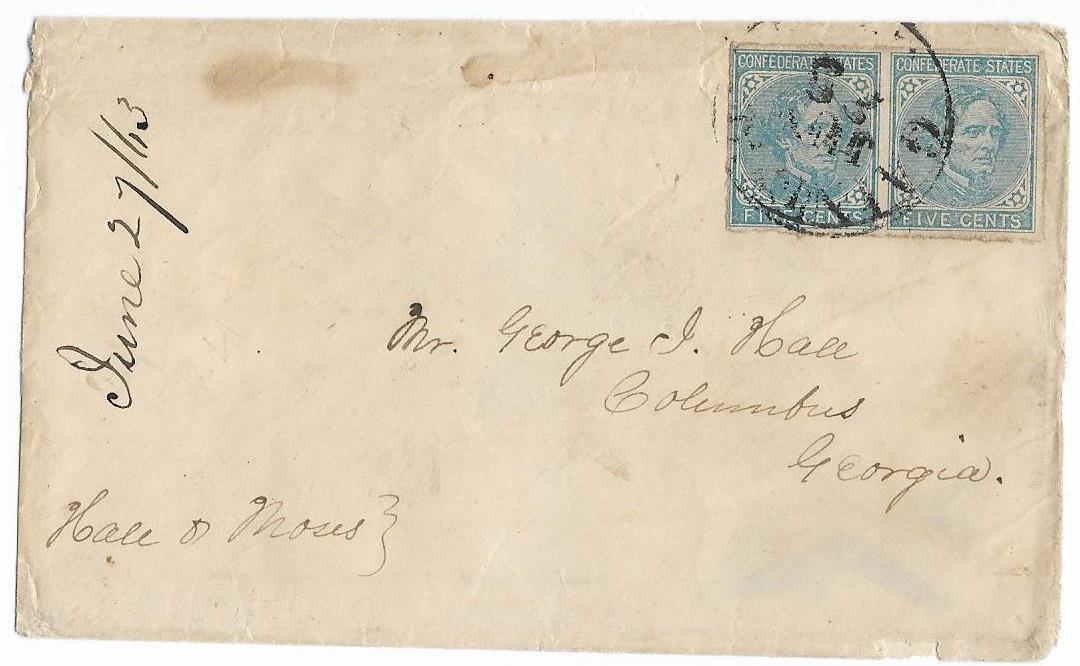 CONFEDERATE STATES CONFEDERATE STATES
FIVE CENTS FIVE CENTS
June 27/63
Mr. George I. Hall
Columbus
Georgia.
Hall & Moses}